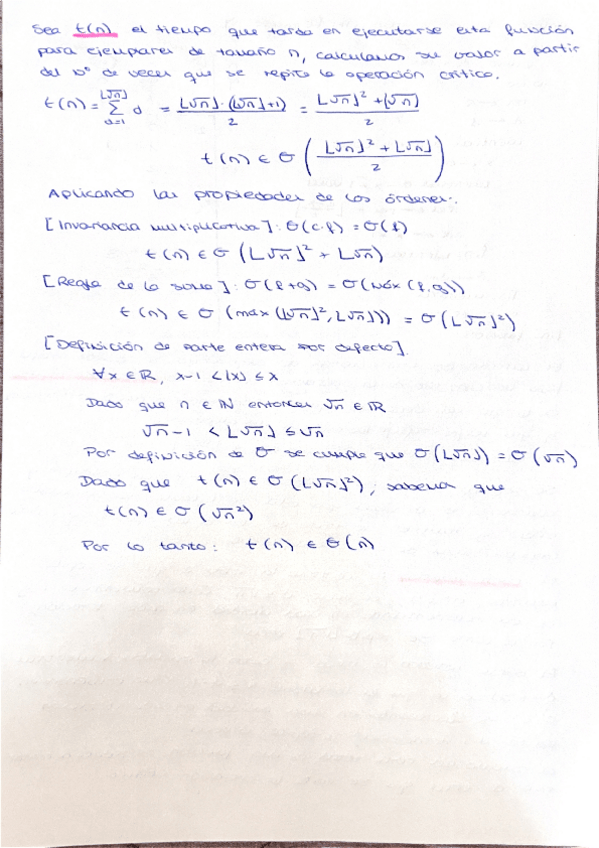 Sea t(n) el tiempo que tarda en ejecutarse esta función
para ejemplares de tamaño n, calculamos su valor a partir
del nº de veces que se repite la operación crítica.
t(n) = ∑_{d=1}^{⌊√n⌋} d = ⌊√n⌋·(⌊√n⌋+1)/2 = ⌊√n⌋² + ⌊√n⌋/2
t(n) ∈ Θ (⌊√n⌋² + ⌊√n⌋/2)
Aplicando las propiedades de los órdenes:
[Invariancia multiplicativa]: Θ(c·f) = Θ(f)
t(n) ∈ Θ (⌊√n⌋² + ⌊√n⌋)
[Regla de la suma]: Θ(f+g) = Θ(máx(f,g))
t(n) ∈ Θ (máx(⌊√n⌋², ⌊√n⌋)) = Θ(⌊√n⌋²)
[Definición de parte entera por defecto].
∀x ∈ ℝ, x-1 < ⌊x⌋ ≤ x
Dado que n ∈ ℕ entonces √n ∈ ℝ
√n-1 < ⌊√n⌋ ≤ √n
Por definición de Θ se cumple que Θ(⌊√n⌋) = Θ(√n)
Dado que t(n) ∈ Θ(⌊√n⌋²), sabemos que
t(n) ∈ Θ(√n²)
Por lo tanto: t(n) ∈ Θ(n)